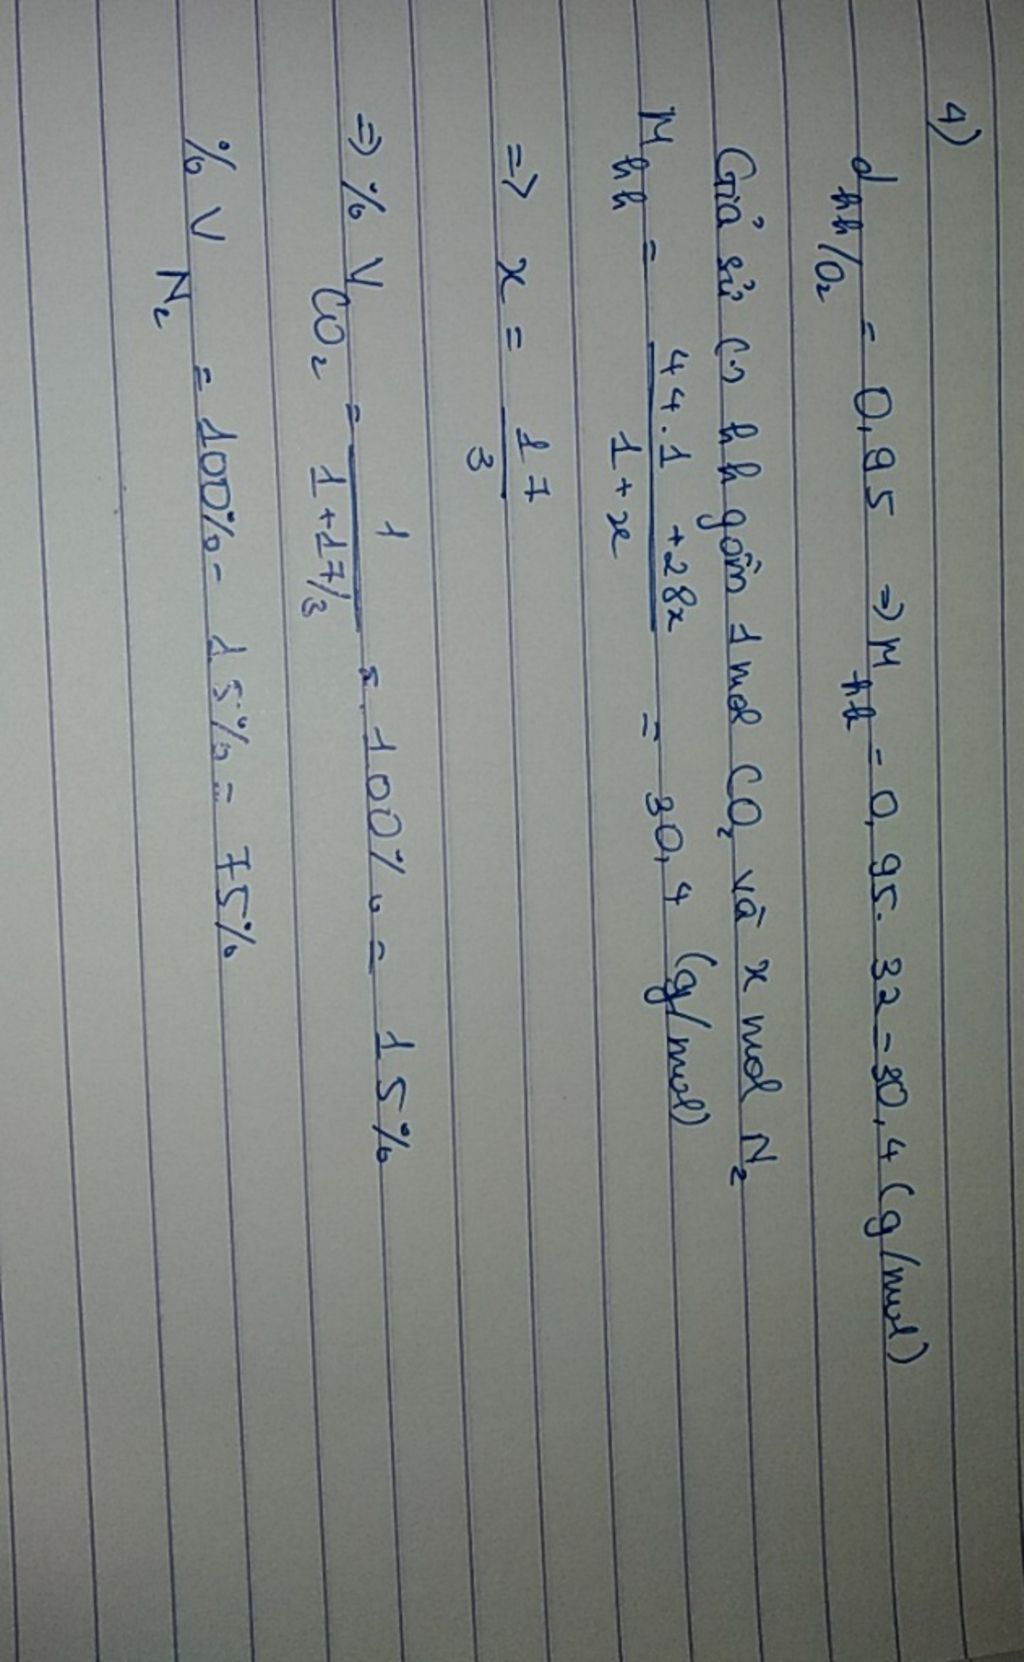 4)
d hh/O₂ = 0,95 => M hh = 0,95.32 = 30,4 (g/mol)
Giả sử (.) hh gồm 1 mol CO₂ và x mol N₂
M hh = (44.1 + 28x)/(1 + x) = 30,4 (g/mol)
=> x = 17/3
=> % V CO₂ = 1/(1 + 17/3) = 100% = 15%
% V N₂ = 100% - 15% = 75%